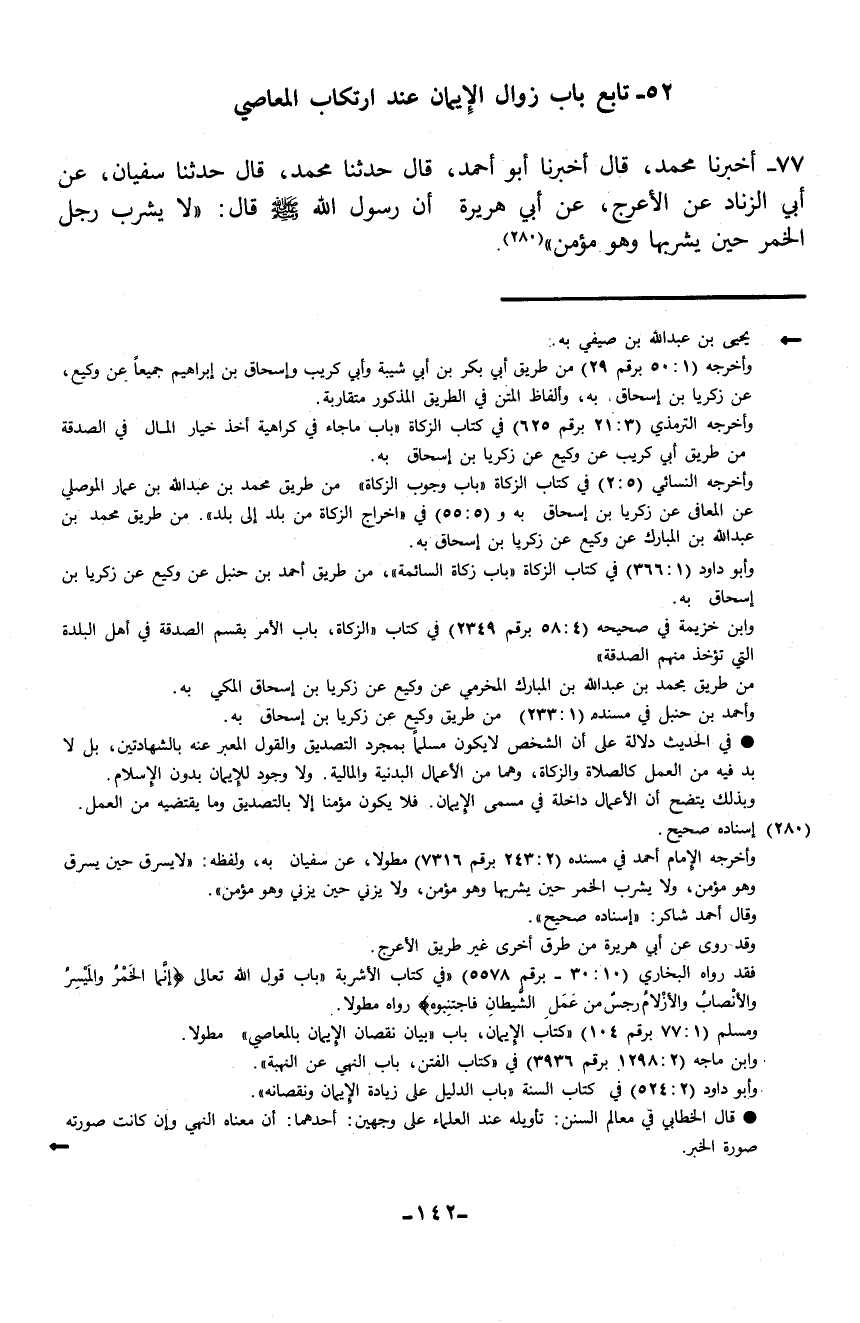 ٥٢ـ تابع باب زوال الإيمان عند ارتكاب المعاصي
٧٧ـ أخبرنا محمد، قال أخبرنا أبو أحمد، قال حدثنا محمد، قال حدثنا سفيان، عن
أبي الزناد عن الأعرج، عن أبي هريرة أن رسول الله ﷺ قال: «لا يشرب رجل
الخمر حين يشربها وهو مؤمن»(٢٨٠).
← يحيى بن عبدالله بن صيفي به.
وأخرجه (٥٠:١ برقم ٢٩) من طريق أبي بكر بن أبي شيبة وأبي كريب وإسحاق بن إبراهيم جميعاً عن وكيع،
عن زكريا بن إسحاق. به، وألفاظ المتن في الطريق المذكور متقاربة.
وأخرجه الترمذي (٢١:٣ برقم ٦٢٥) في كتاب الزكاة «باب ماجاء في كراهية أخذ خيار المال في الصدقة
من طريق أبي كريب عن وكيع عن زكريا بن إسحاق به.
وأخرجه النسائي (٢:٥) في كتاب الزكاة «باب وجوب الزكاة» من طريق محمد بن عبدالله بن عمار الموصلي
عن المعافى عن زكريا بن إسحاق به و (٥٥:٥) في «اخراج الزكاة من بلد إلى بلد». من طريق محمد بن
عبدالله بن المبارك عن وكيع عن زكريا بن إسحاق به.
وأبو داود (٣٦٦:١) في كتاب الزكاة «باب زكاة السائمة»، من طريق أحمد بن حنبل عن وكيع عن زكريا بن
إسحاق به.
وابن خزيمة في صحيحه (٥٨:٤ برقم ٢٣٤٩) في كتاب «الزكاة، باب الأمر بقسم الصدقة في أهل البلدة
التي تؤخذ منهم الصدقة»
من طريق محمد بن عبدالله بن المبارك المخرمي عن وكيع عن زكريا بن إسحاق المكي به.
وأحمد بن حنبل في مسنده (٢٣٣:١) من طريق وكيع عن زكريا بن إسحاق به.
● في الحديث دلالة على أن الشخص لايكون مسلماً بمجرد التصديق والقول المعبر عنه بالشهادتين، بل لا
بد فيه من العمل كالصلاة والزكاة، وهما من الأعمال البدنية والمالية. ولا وجود للإيمان بدون الإسلام.
وبذلك يتضح أن الأعمال داخلة في مسمى الإيمان. فلا يكون مؤمنا إلا بالتصديق وما يقتضيه من العمل.
(٢٨٠) إسناده صحيح.
وأخرجه الإمام أحمد في مسنده (٢٤٣:٢ برقم ٧٣١٦) مطولا، عن سفيان به، ولفظه: «لايسرق حين يسرق
وهو مؤمن، ولا يشرب الخمر حين يشربها وهو مؤمن، ولا يزني حين يزني وهو مؤمن».
وقال أحمد شاكر: «إسناده صحيح».
وقد روى عن أبي هريرة من طرق أخرى غير طريق الأعرج.
فقد رواه البخاري (٣٠:١٠ ـ برقم ٥٥٧٨) «في كتاب الأشربة «باب قول الله تعالى ﴿إنَّما الخَمْرُ والمَيْسِرُ
والأنْصابُ والأزْلامُ رجسٌ من عَمَلِ الشَّيطانِ فاجتنِبوه﴾ رواه مطولا.
ومسلم (٧٧:١ برقم ١٠٤) «كتاب الإيمان، باب «بيان نقصان الإيمان بالمعاصي» مطولا.
وابن ماجه (١٢٩٨:٢ برقم ٣٩٣٦) في «كتاب الفتن، باب النهي عن النهبة».
وأبو داود (٥٢٤:٢) في كتاب السنة «باب الدليل على زيادة الإيمان ونقصانه».
● قال الخطابي في معالم السنن: تأويله عند العلماء على وجهين: أحدهما: أن معناه النهي وإن كانت صورته
صورة الخبر. ←
ـ١٤٢ـ